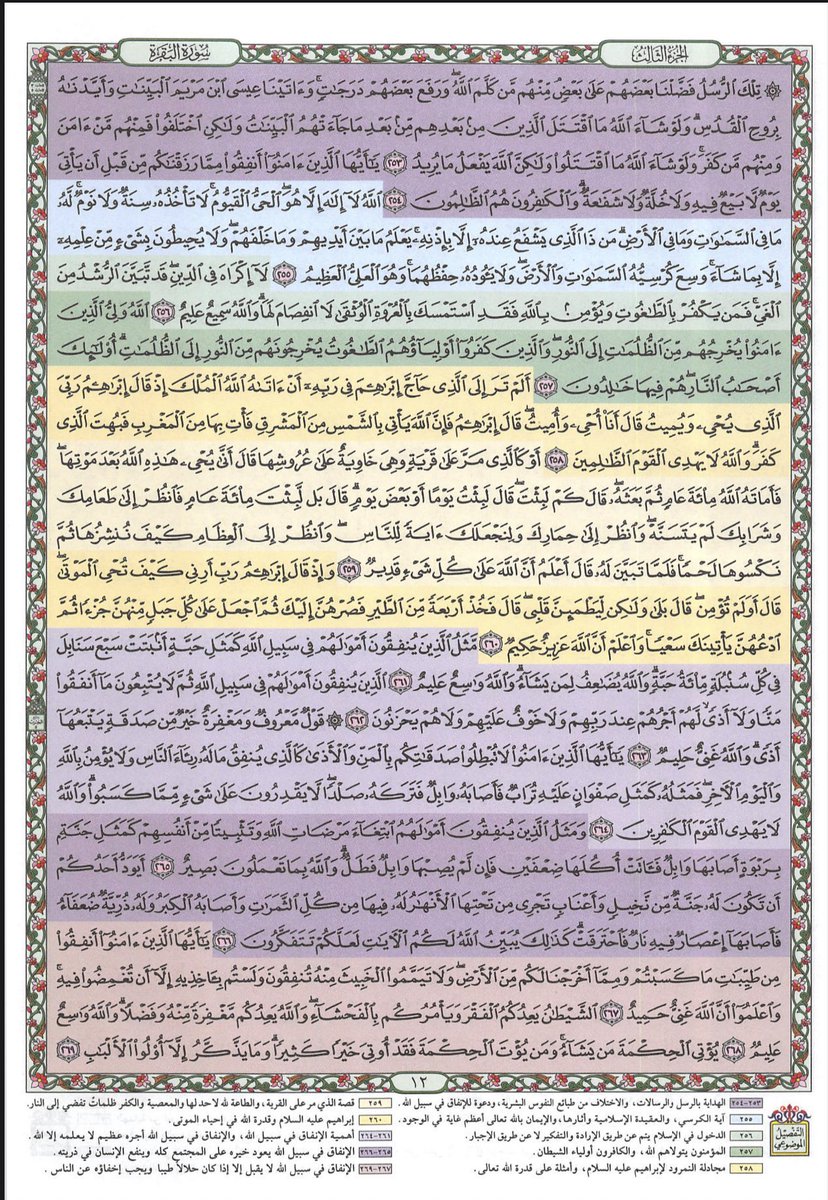 الجزء الثالث
سورة البقرة
۞ تِلْكَ ٱلرُّسُلُ فَضَّلْنَا بَعْضَهُمْ عَلَىٰ بَعْضٍ مِّنْهُم مَّن كَلَّمَ ٱللَّهُ وَرَفَعَ بَعْضَهُمْ دَرَجَـٰتٍ وَءَاتَيْنَا عِيسَى ٱبْنَ مَرْيَمَ ٱلْبَيِّنَـٰتِ وَأَيَّدْنَـٰهُ
بِرُوحِ ٱلْقُدُسِ وَلَوْ شَآءَ ٱللَّهُ مَا ٱقْتَتَلَ ٱلَّذِينَ مِنۢ بَعْدِهِم مِّنۢ بَعْدِ مَا جَآءَتْهُمُ ٱلْبَيِّنَـٰتُ وَلَـٰكِنِ ٱخْتَلَفُوا۟ فَمِنْهُم مَّنْ ءَامَنَ
وَمِنْهُم مَّن كَفَرَ وَلَوْ شَآءَ ٱللَّهُ مَا ٱقْتَتَلُوا۟ وَلَـٰكِنَّ ٱللَّهَ يَفْعَلُ مَا يُرِيدُ ٢٥٣ يَـٰٓأَيُّهَا ٱلَّذِينَ ءَامَنُوٓا۟ أَنفِقُوا۟ مِمَّا رَزَقْنَـٰكُم مِّن قَبْلِ أَن يَأْتِىَ
يَوْمٌ لَّا بَيْعٌ فِيهِ وَلَا خُلَّةٌ وَلَا شَفَـٰعَةٌ وَٱلْكَـٰفِرُونَ هُمُ ٱلظَّـٰلِمُونَ ٢٥٤ ٱللَّهُ لَآ إِلَـٰهَ إِلَّا هُوَ ٱلْحَىُّ ٱلْقَيُّومُ لَا تَأْخُذُهُۥ سِنَةٌ وَلَا نَوْمٌ لَّهُۥ
مَا فِى ٱلسَّمَـٰوَٰتِ وَمَا فِى ٱلْأَرْضِ مَن ذَا ٱلَّذِى يَشْفَعُ عِندَهُۥٓ إِلَّا بِإِذْنِهِۦ يَعْلَمُ مَا بَيْنَ أَيْدِيهِمْ وَمَا خَلْفَهُمْ وَلَا يُحِيطُونَ بِشَىْءٍ مِّنْ عِلْمِهِۦٓ
إِلَّا بِمَا شَآءَ وَسِعَ كُرْسِيُّهُ ٱلسَّمَـٰوَٰتِ وَٱلْأَرْضَ وَلَا يَـُٔودُهُۥ حِفْظُهُمَا وَهُوَ ٱلْعَلِىُّ ٱلْعَظِيمُ ٢٥٥ لَآ إِكْرَاهَ فِى ٱلدِّينِ قَد تَّبَيَّنَ ٱلرُّشْدُ مِنَ
ٱلْغَىِّ فَمَن يَكْفُرْ بِٱلطَّـٰغُوتِ وَيُؤْمِنۢ بِٱللَّهِ فَقَدِ ٱسْتَمْسَكَ بِٱلْعُرْوَةِ ٱلْوُثْقَىٰ لَا ٱنفِصَامَ لَهَا وَٱللَّهُ سَمِيعٌ عَلِيمٌ ٢٥٦ ٱللَّهُ وَلِىُّ ٱلَّذِينَ
ءَامَنُوا۟ يُخْرِجُهُم مِّنَ ٱلظُّلُمَـٰتِ إِلَى ٱلنُّورِ وَٱلَّذِينَ كَفَرُوٓا۟ أَوْلِيَآؤُهُمُ ٱلطَّـٰغُوتُ يُخْرِجُونَهُم مِّنَ ٱلنُّورِ إِلَى ٱلظُّلُمَـٰتِ أُو۟لَـٰٓئِكَ
أَصْحَـٰبُ ٱلنَّارِ هُمْ فِيهَا خَـٰلِدُونَ ٢٥٧ أَلَمْ تَرَ إِلَى ٱلَّذِى حَآجَّ إِبْرَٰهِـۧمَ فِى رَبِّهِۦٓ أَنْ ءَاتَىٰهُ ٱللَّهُ ٱلْمُلْكَ إِذْ قَالَ إِبْرَٰهِـۧمُ رَبِّىَ
ٱلَّذِى يُحْىِۦ وَيُمِيتُ قَالَ أَنَا۠ أُحْىِۦ وَأُمِيتُ قَالَ إِبْرَٰهِـۧمُ فَإِنَّ ٱللَّهَ يَأْتِى بِٱلشَّمْسِ مِنَ ٱلْمَشْرِقِ فَأْتِ بِهَا مِنَ ٱلْمَغْرِبِ فَبُهِتَ ٱلَّذِى
كَفَرَ وَٱللَّهُ لَا يَهْدِى ٱلْقَوْمَ ٱلظَّـٰلِمِينَ ٢٥٨ أَوْ كَٱلَّذِى مَرَّ عَلَىٰ قَرْيَةٍ وَهِىَ خَاوِيَةٌ عَلَىٰ عُرُوشِهَا قَالَ أَنَّىٰ يُحْىِۦ هَـٰذِهِ ٱللَّهُ بَعْدَ مَوْتِهَا
فَأَمَاتَهُ ٱللَّهُ مِا۟ئَةَ عَامٍ ثُمَّ بَعَثَهُۥ قَالَ كَمْ لَبِثْتَ قَالَ لَبِثْتُ يَوْمًا أَوْ بَعْضَ يَوْمٍ قَالَ بَل لَّبِثْتَ مِا۟ئَةَ عَامٍ فَٱنظُرْ إِلَىٰ طَعَامِكَ
وَشَرَابِكَ لَمْ يَتَسَنَّهْ وَٱنظُرْ إِلَىٰ حِمَارِكَ وَلِنَجْعَلَكَ ءَايَةً لِّلنَّاسِ وَٱنظُرْ إِلَى ٱلْعِظَامِ كَيْفَ نُنشِزُهَا ثُمَّ
نَكْسُوهَا لَحْمًا فَلَمَّا تَبَيَّنَ لَهُۥ قَالَ أَعْلَمُ أَنَّ ٱللَّهَ عَلَىٰ كُلِّ شَىْءٍ قَدِيرٌ ٢٥٩ وَإِذْ قَالَ إِبْرَٰهِـۧمُ رَبِّ أَرِنِى كَيْفَ تُحْىِ ٱلْمَوْتَىٰ
قَالَ أَوَلَمْ تُؤْمِن قَالَ بَلَىٰ وَلَـٰكِن لِّيَطْمَئِنَّ قَلْبِى قَالَ فَخُذْ أَرْبَعَةً مِّنَ ٱلطَّيْرِ فَصُرْهُنَّ إِلَيْكَ ثُمَّ ٱجْعَلْ عَلَىٰ كُلِّ جَبَلٍ مِّنْهُنَّ جُزْءًا ثُمَّ
ٱدْعُهُنَّ يَأْتِينَكَ سَعْيًا وَٱعْلَمْ أَنَّ ٱللَّهَ عَزِيزٌ حَكِيمٌ ٢٦٠ مَّثَلُ ٱلَّذِينَ يُنفِقُونَ أَمْوَٰلَهُمْ فِى سَبِيلِ ٱللَّهِ كَمَثَلِ حَبَّةٍ أَنۢبَتَتْ سَبْعَ سَنَابِلَ
فِى كُلِّ سُنۢبُلَةٍ مِّا۟ئَةُ حَبَّةٍ وَٱللَّهُ يُضَـٰعِفُ لِمَن يَشَآءُ وَٱللَّهُ وَٰسِعٌ عَلِيمٌ ٢٦١ ٱلَّذِينَ يُنفِقُونَ أَمْوَٰلَهُمْ فِى سَبِيلِ ٱللَّهِ ثُمَّ لَا يُتْبِعُونَ مَآ أَنفَقُوا۟
مَنًّا وَلَآ أَذًى لَّهُمْ أَجْرُهُمْ عِندَ رَبِّهِمْ وَلَا خَوْفٌ عَلَيْهِمْ وَلَا هُمْ يَحْزَنُونَ ٢٦٢ ۞ قَوْلٌ مَّعْرُوفٌ وَمَغْفِرَةٌ خَيْرٌ مِّن صَدَقَةٍ يَتْبَعُهَآ
أَذًى وَٱللَّهُ غَنِىٌّ حَلِيمٌ ٢٦٣ يَـٰٓأَيُّهَا ٱلَّذِينَ ءَامَنُوا۟ لَا تُبْطِلُوا۟ صَدَقَـٰتِكُم بِٱلْمَنِّ وَٱلْأَذَىٰ كَٱلَّذِى يُنفِقُ مَالَهُۥ رِئَآءَ ٱلنَّاسِ وَلَا يُؤْمِنُ بِٱللَّهِ
وَٱلْيَوْمِ ٱلْـَٔاخِرِ فَمَثَلُهُۥ كَمَثَلِ صَفْوَانٍ عَلَيْهِ تُرَابٌ فَأَصَابَهُۥ وَابِلٌ فَتَرَكَهُۥ صَلْدًا لَّا يَقْدِرُونَ عَلَىٰ شَىْءٍ مِّمَّا كَسَبُوا۟ وَٱللَّهُ
لَا يَهْدِى ٱلْقَوْمَ ٱلْكَـٰفِرِينَ ٢٦٤ وَمَثَلُ ٱلَّذِينَ يُنفِقُونَ أَمْوَٰلَهُمُ ٱبْتِغَآءَ مَرْضَاتِ ٱللَّهِ وَتَثْبِيتًا مِّنْ أَنفُسِهِمْ كَمَثَلِ جَنَّةٍۭ
بِرَبْوَةٍ أَصَابَهَا وَابِلٌ فَـَٔاتَتْ أُكُلَهَا ضِعْفَيْنِ فَإِن لَّمْ يُصِبْهَا وَابِلٌ فَطَلٌّ وَٱللَّهُ بِمَا تَعْمَلُونَ بَصِيرٌ ٢٦٥ أَيَوَدُّ أَحَدُكُمْ
أَن تَكُونَ لَهُۥ جَنَّةٌ مِّن نَّخِيلٍ وَأَعْنَابٍ تَجْرِى مِن تَحْتِهَا ٱلْأَنْهَـٰرُ لَهُۥ فِيهَا مِن كُلِّ ٱلثَّمَرَٰتِ وَأَصَابَهُ ٱلْكِبَرُ وَلَهُۥ ذُرِّيَّةٌ ضُعَفَآءُ
فَأَصَابَهَآ إِعْصَارٌ فِيهِ نَارٌ فَٱحْتَرَقَتْ كَذَٰلِكَ يُبَيِّنُ ٱللَّهُ لَكُمُ ٱلْـَٔايَـٰتِ لَعَلَّكُمْ تَتَفَكَّرُونَ ٢٦٦ يَـٰٓأَيُّهَا ٱلَّذِينَ ءَامَنُوٓا۟ أَنفِقُوا۟
مِن طَيِّبَـٰتِ مَا كَسَبْتُمْ وَمِمَّآ أَخْرَجْنَا لَكُم مِّنَ ٱلْأَرْضِ وَلَا تَيَمَّمُوا۟ ٱلْخَبِيثَ مِنْهُ تُنفِقُونَ وَلَسْتُم بِـَٔاخِذِيهِ إِلَّآ أَن تُغْمِضُوا۟ فِيهِ
وَٱعْلَمُوٓا۟ أَنَّ ٱللَّهَ غَنِىٌّ حَمِيدٌ ٢٦٧ ٱلشَّيْطَـٰنُ يَعِدُكُمُ ٱلْفَقْرَ وَيَأْمُرُكُم بِٱلْفَحْشَآءِ وَٱللَّهُ يَعِدُكُم مَّغْفِرَةً مِّنْهُ وَفَضْلًا وَٱللَّهُ وَٰسِعٌ
عَلِيمٌ ٢٦٨ يُؤْتِى ٱلْحِكْمَةَ مَن يَشَآءُ وَمَن يُؤْتَ ٱلْحِكْمَةَ فَقَدْ أُوتِىَ خَيْرًا كَثِيرًا وَمَا يَذَّكَّرُ إِلَّآ أُو۟لُوا۟ ٱلْأَلْبَـٰبِ ٢٦٩
١٢
التفصيل الموضوعي
٢٥٣-٢٥٤ الهداية بالرسل والرسالات، والاختلاف من طبائع النفوس البشرية، ودعوة للإنفاق في سبيل الله.
٢٥٥ آية الكرسي، والعقيدة الإسلامية وآثارها، والإيمان بالله تعالى أعظم غاية في الوجود.
٢٥٦ الدخول في الإسلام يتم عن طريق الإرادة والتفكير لا عن طريق الإجبار.
٢٥٧ المؤمنون يتولاهم الله، والكافرون أولياء الشيطان.
٢٥٨ مجادلة النمرود لإبراهيم عليه السلام، وأمثلة على قدرة الله تعالى.
٢٥٩ قصة الذي مر على القرية، والطاعة لله لا حد لها والمعصية والكفر ظلمات تفضي إلى النار.
٢٦٠ إبراهيم عليه السلام وقدرة الله في إحياء الموتى.
٢٦١-٢٦٤ أهمية الإنفاق في سبيل الله، والإنفاق في سبيل الله أجره عظيم لا يعلمه إلا الله.
٢٦٥-٢٦٦ الإنفاق في سبيل الله يعود خيره على المجتمع كله وينفع الإنسان في ذريته.
٢٦٧-٢٦٩ الإنفاق في سبيل الله لا يقبل إلا إذا كان حلالاً طيباً ويجب إخفاؤه عن الناس.